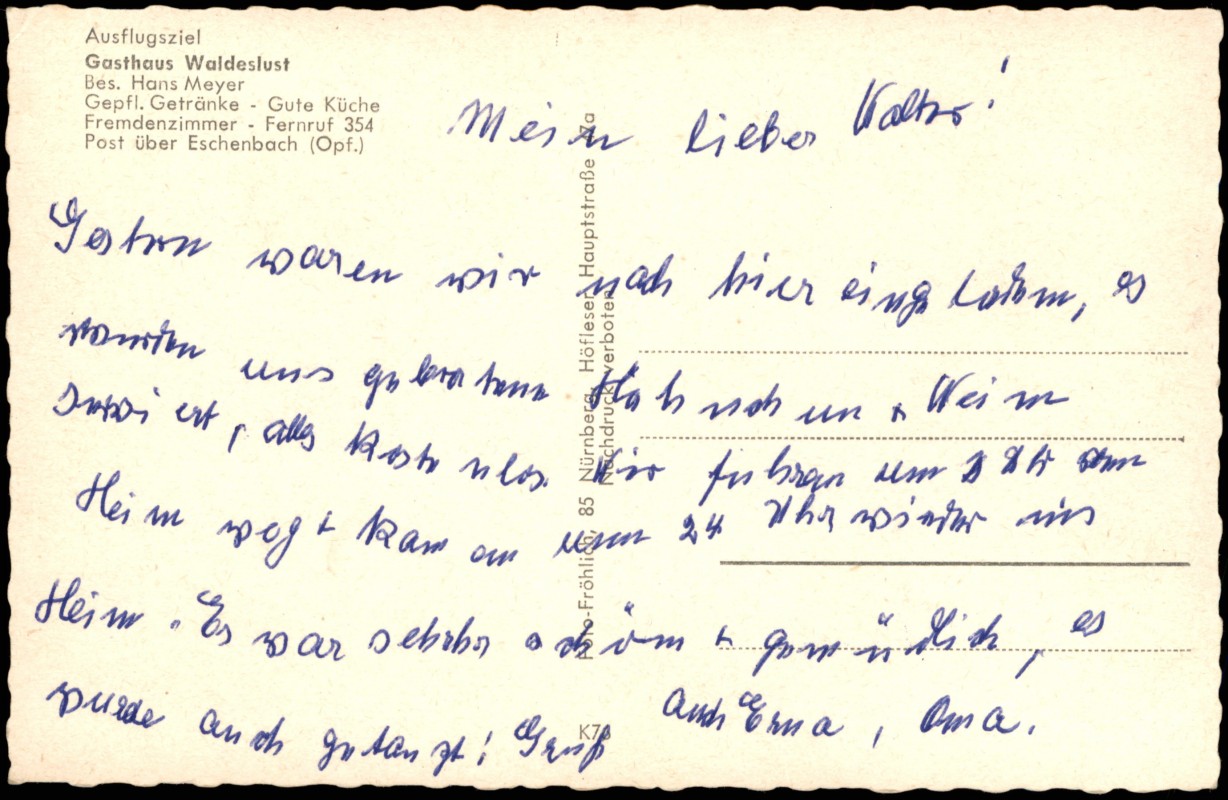 Ausflugsziel
Gasthaus Waldeslust
Bes. Hans Meyer
Gepfl. Getränke - Gute Küche
Fremdenzimmer - Fernruf 354
Post über Eschenbach (Opf.)
Mein lieber Walter!
Gestern waren wir nach hier eingeladen, es
wurden uns gebratene Hähnchen + Wein
serviert, alles kostenlos. Wir fuhren um Uhr vom
Heim weg + kamen um 24 Uhr wieder ins
Heim. Es war sehr schön + gemüdlich, es
wurde auch getanzt! Gruß
auch Erna, Oma.
Foto-Fröhlich, 85 Nürnberg, Höfleser Hauptstraße
Nachdruck verboten